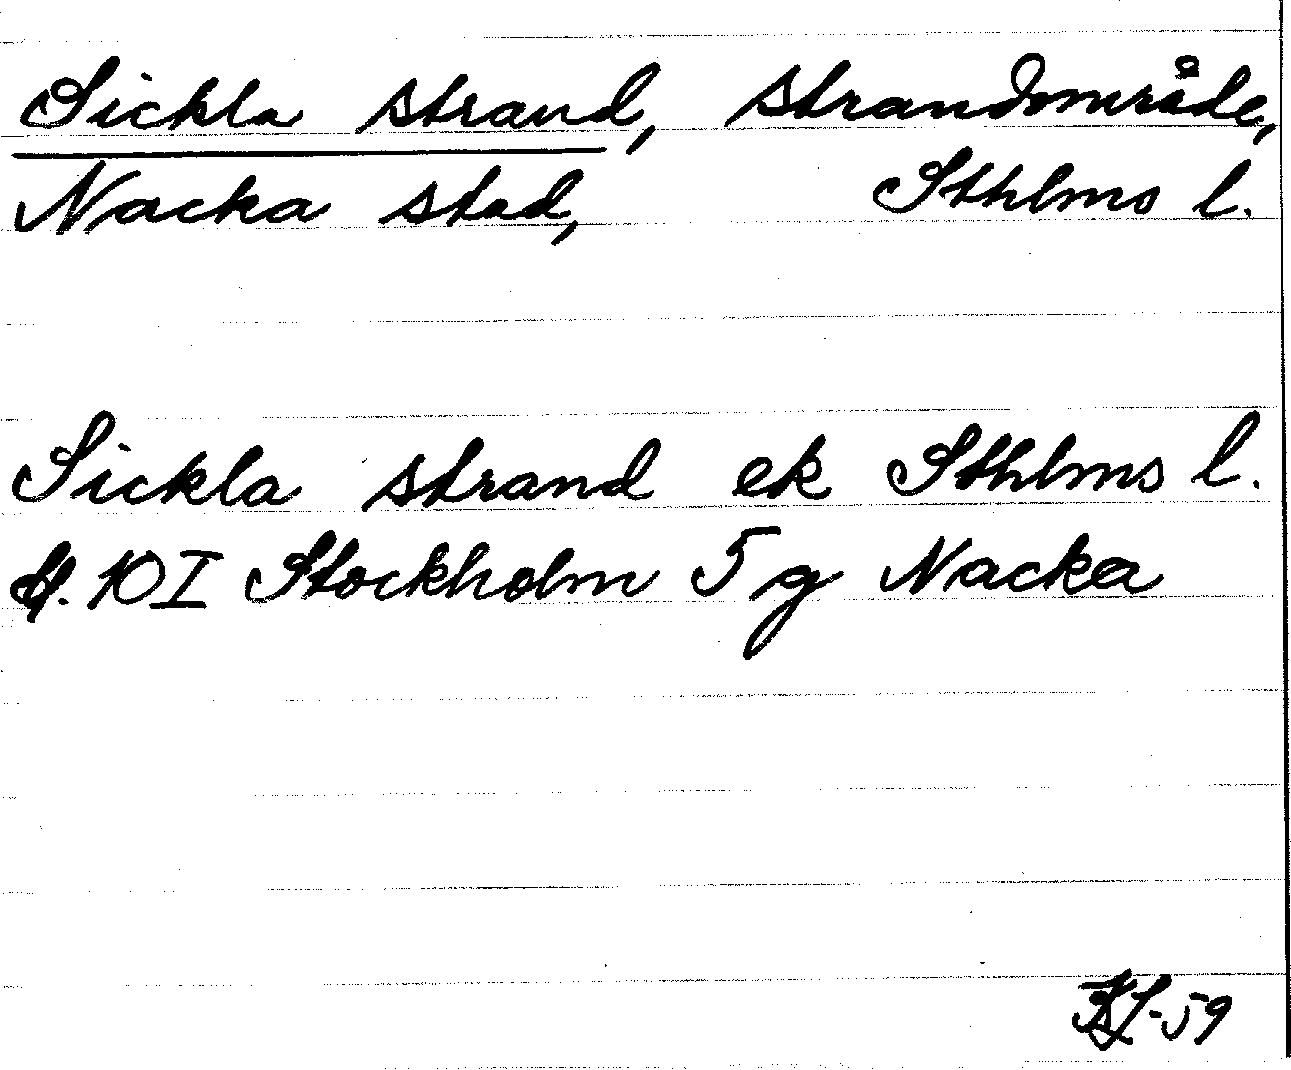 Sickla strand, strandområde,
Nacka stad, Sthlms l.
Sickla strand ek Sthlms l.
bl. 10 I Stockholm 5 g Nacka